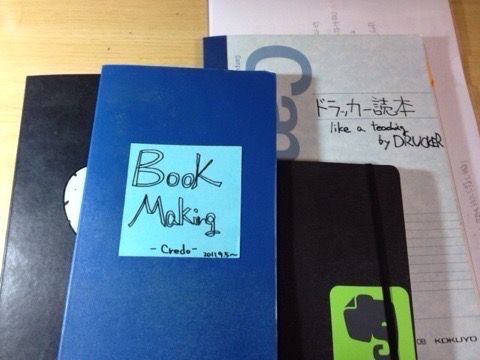 Book
Making
- Credo -
2011.9.5~
Cam
ドラッカー読本
like a teaching
by DRUCKER
08 KOKUYO